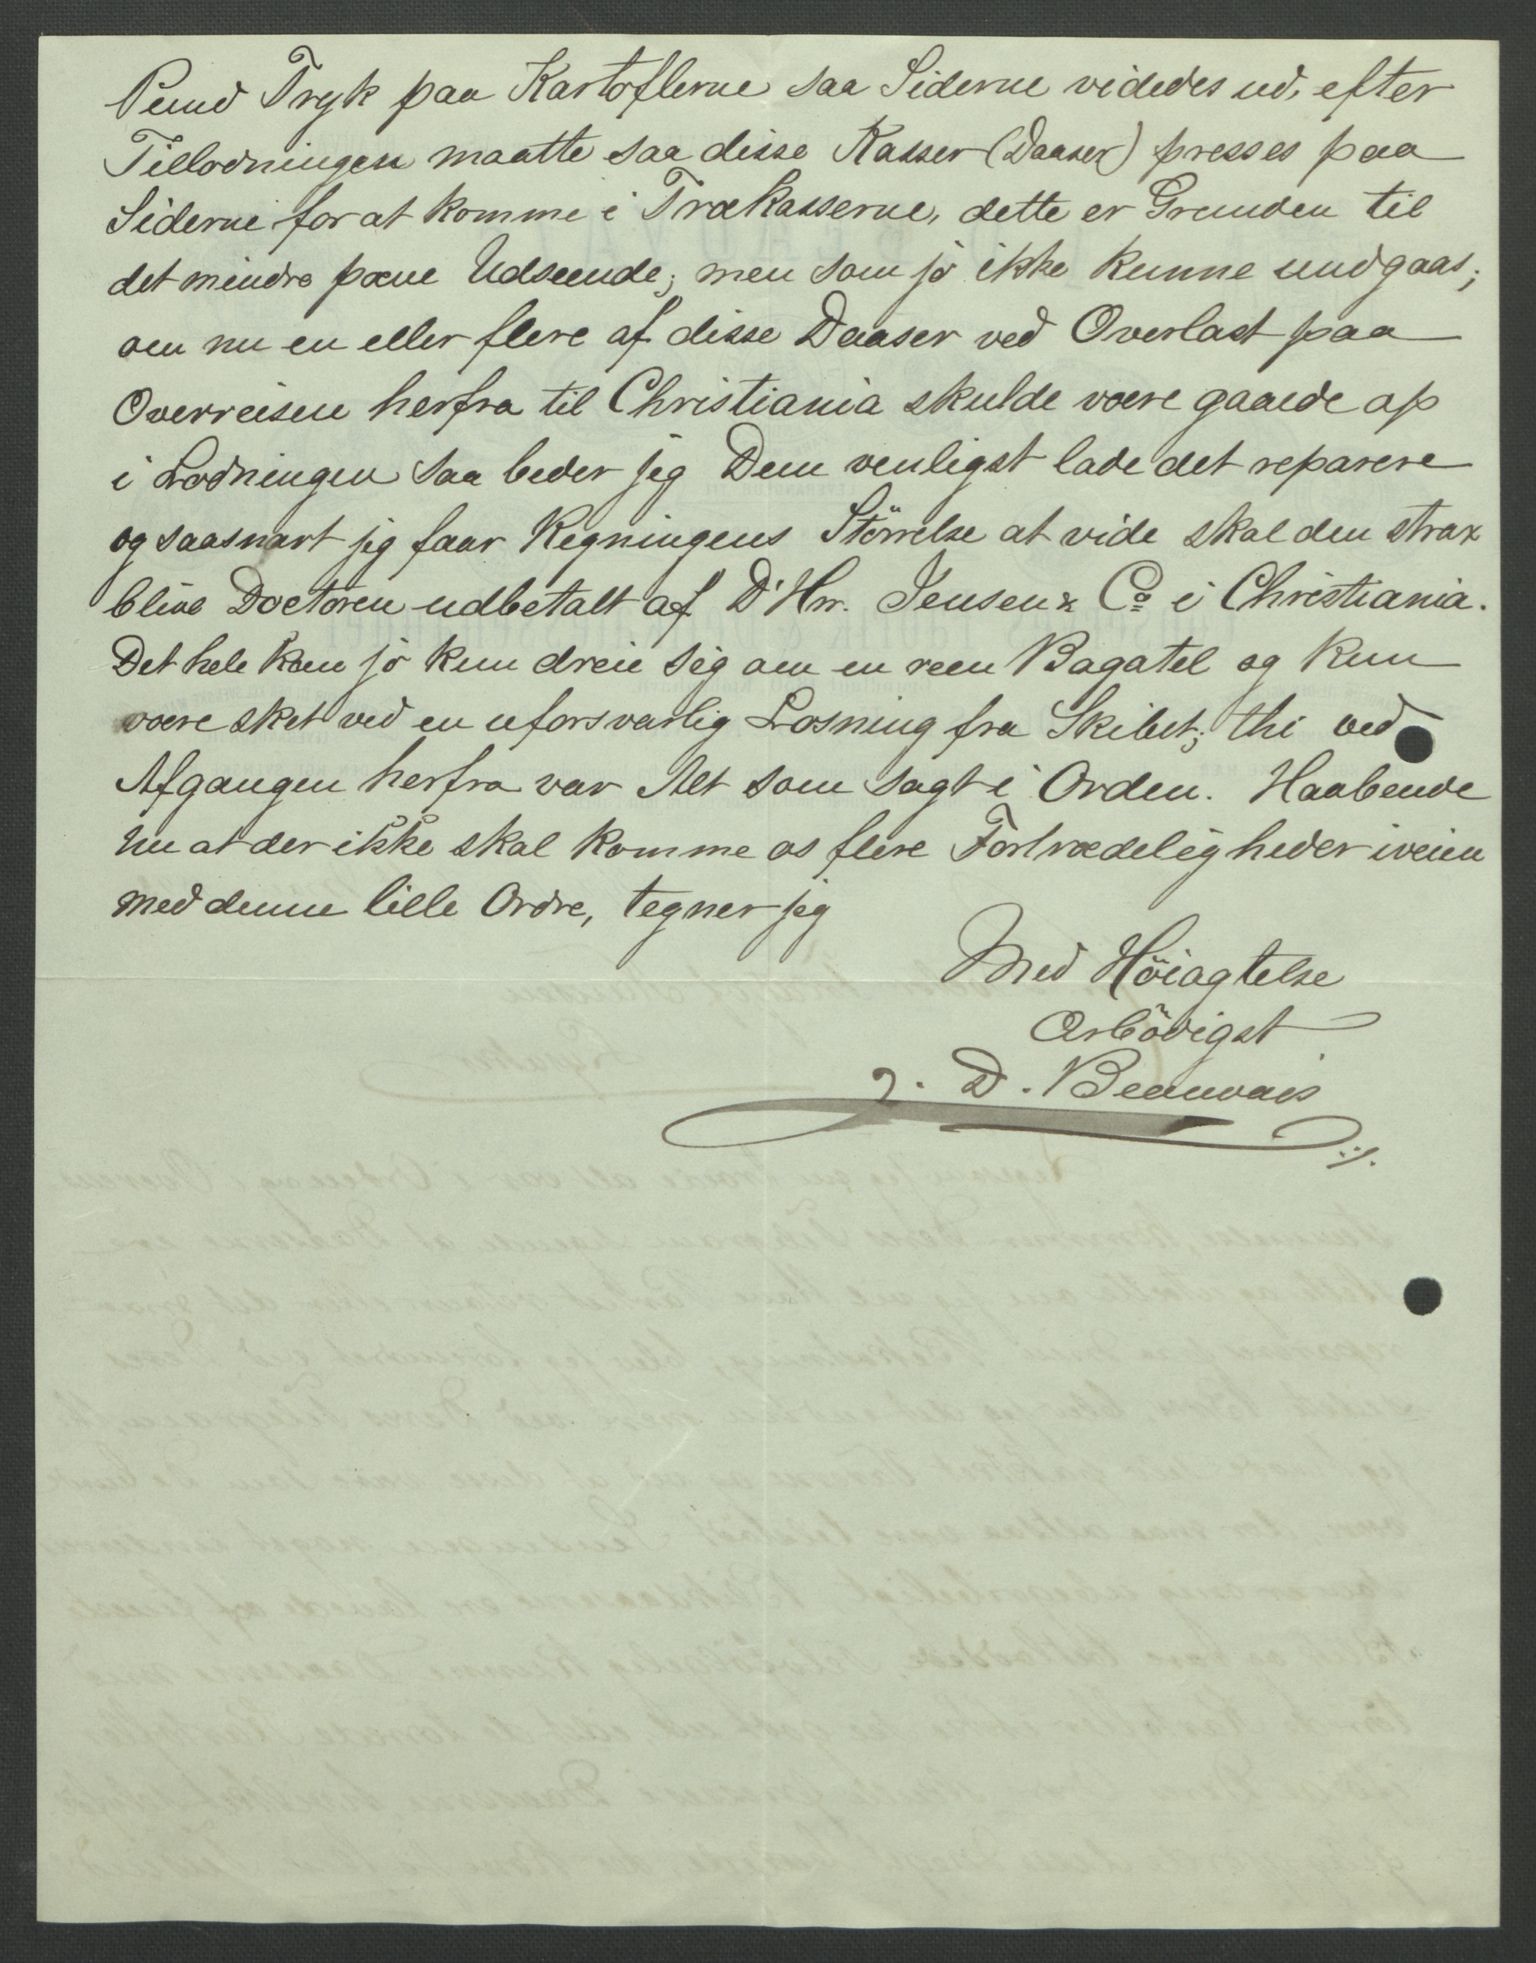 Pund Tryk paa Kartoflerne saa Siderne videdes ud, efter
Tillodningen maatte saa disse Kasser (Daaser) presses paa
Siderne for at komme i Trækasserne, dette er Grunden til
det mindre pæne Udseende; men som jo ikke kunne undgaas;
om nu en eller flere af disse Daaser ved Overlast paa
Overreisen herfra til Christiania skulde være gaaede op
i Lodningen saa beder jeg Dem venligst lade det reparere
og saasnart jeg faar Regningens Störrelse at vide skal den strax
blive Doctoren udbetalt af D'Hrr. Jensen & Co i Christiania.
Det hele kan jo kun dreie sig om en reen Bagatel og kun
være sket ved en uforsvarlig Losning fra Skibet; thi ved
Afgangen herfra var Alt som sagt i Orden. Haabende
nu at der ikke skal komme os flere Fortrædeligheder iveien
med denne lille Ordre, tegner jeg
Med Höiagtelse
Ærbödigst
J. D. Beauvais